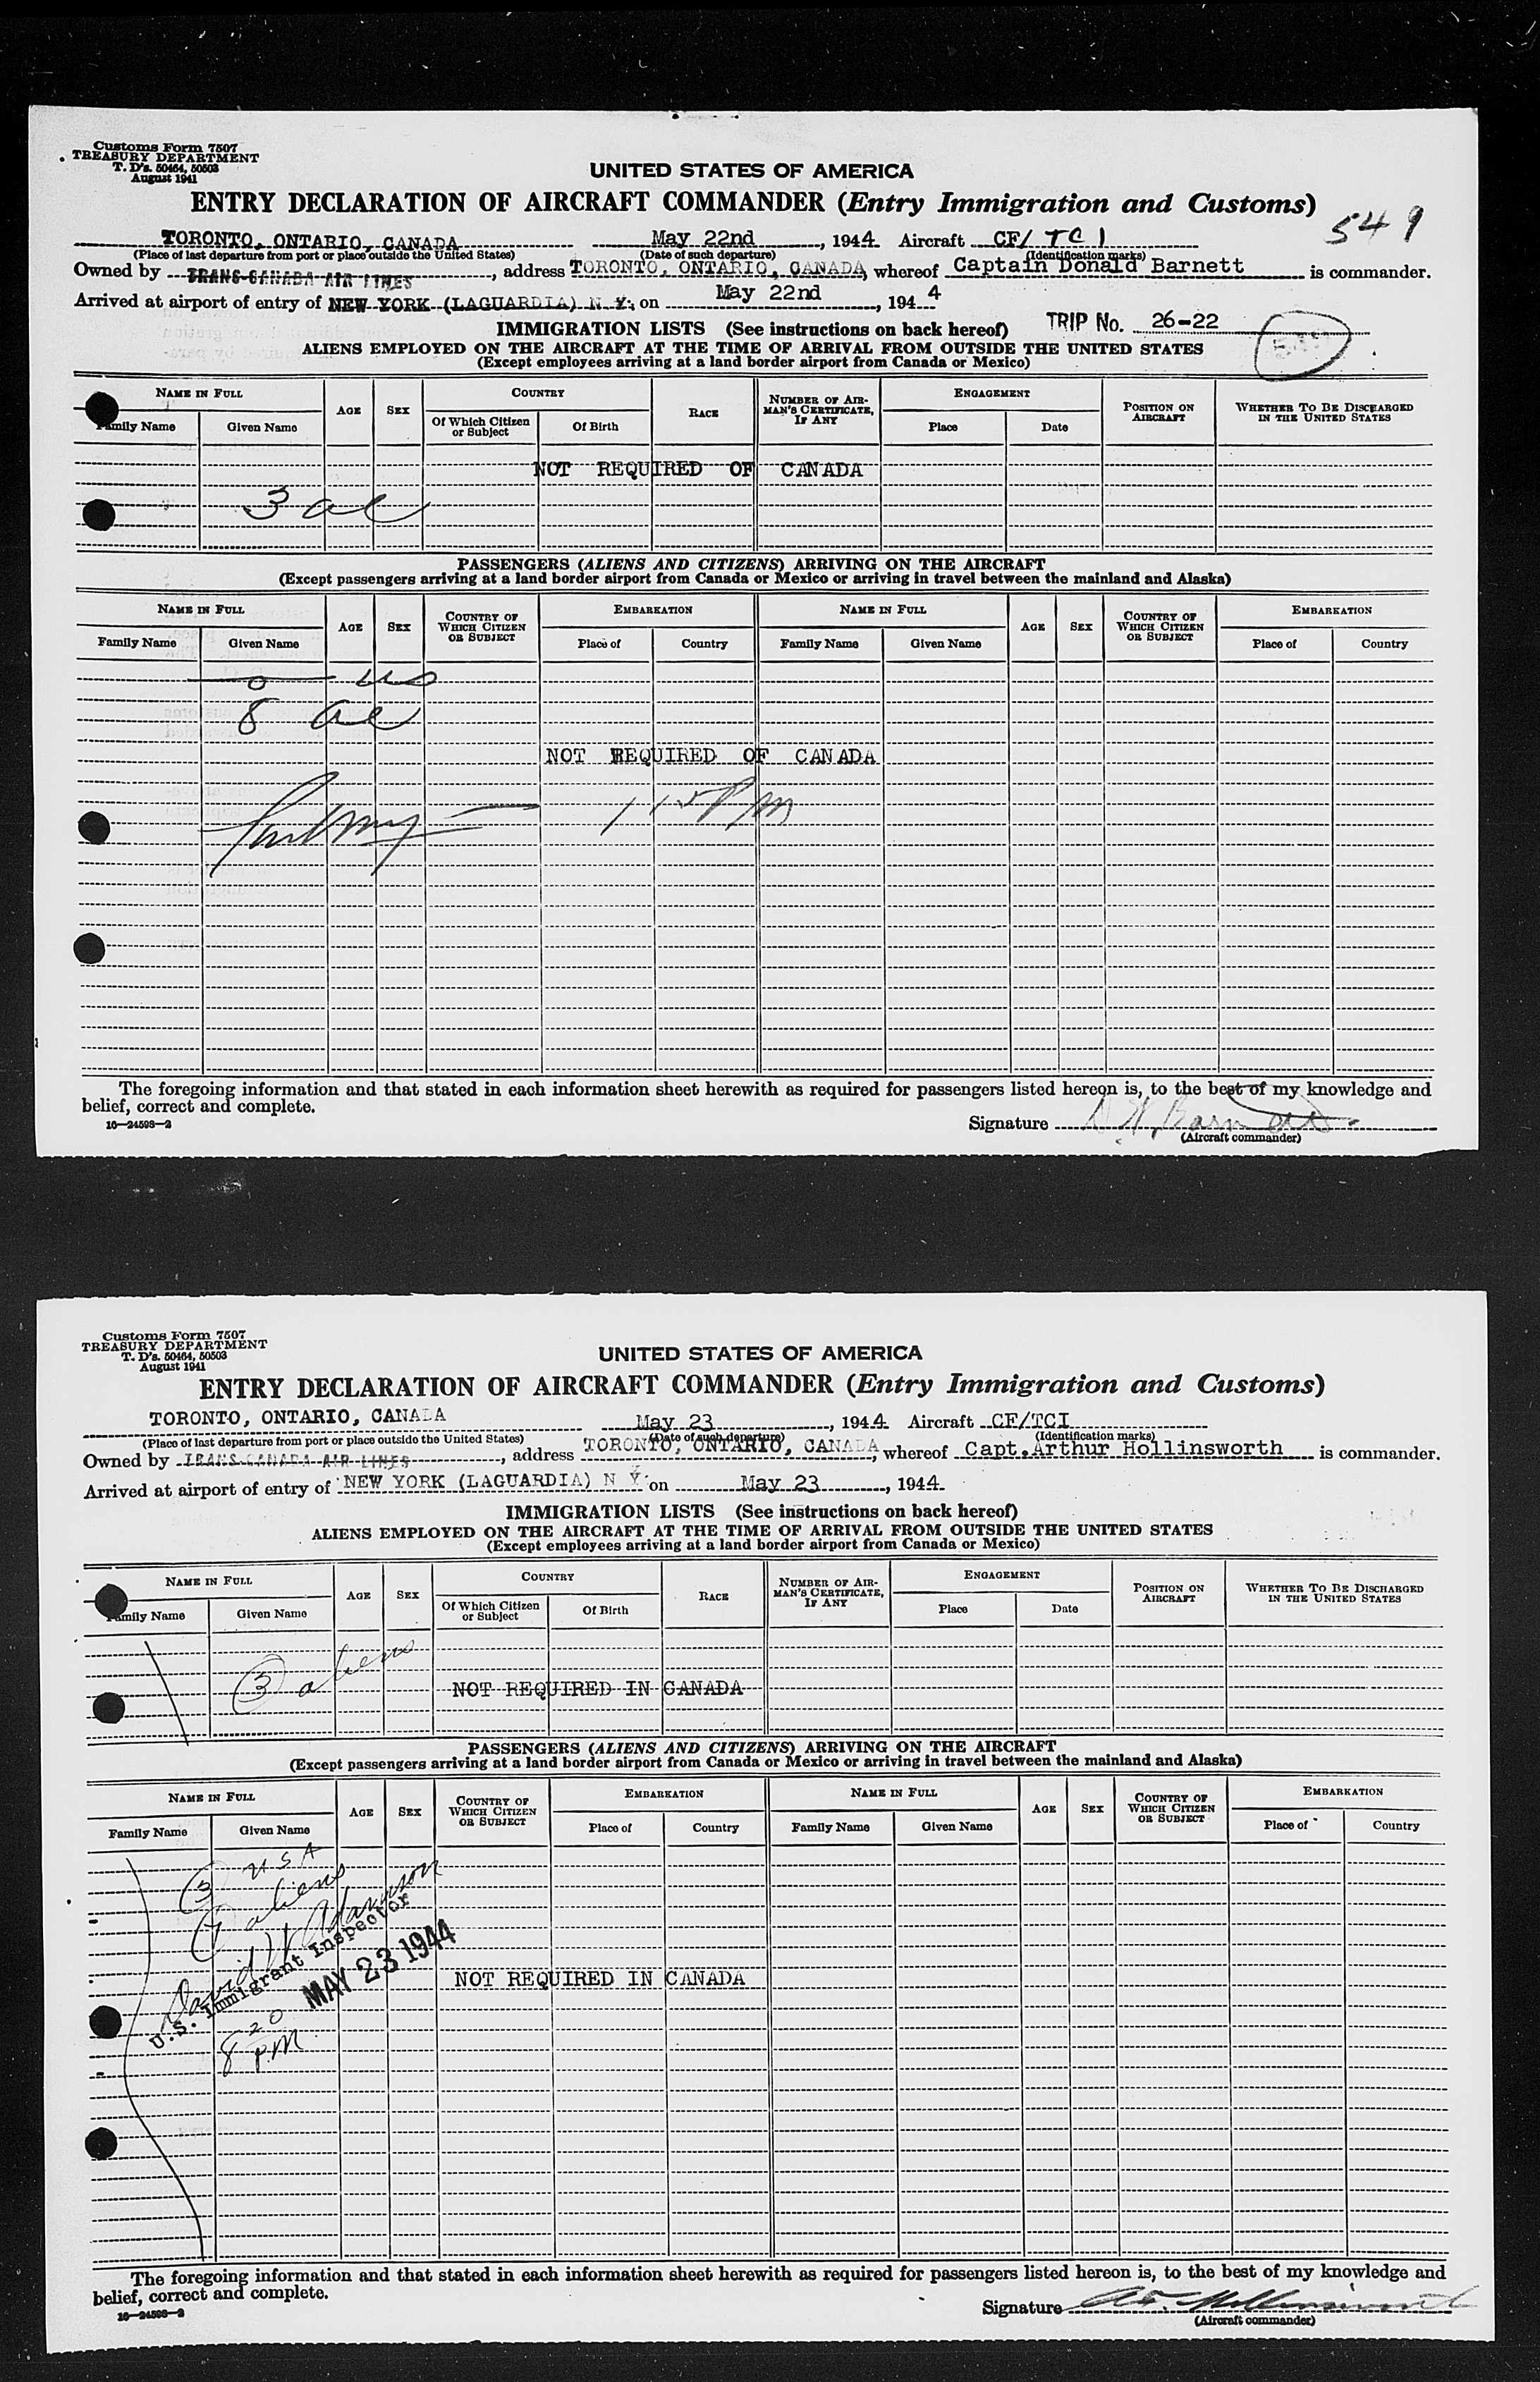 Customs Form 7507
TREASURY DEPARTMENT
T. D's. 50464, 50503
August 1941
UNITED STATES OF AMERICA
ENTRY DECLARATION OF AIRCRAFT COMMANDER (Entry Immigration and Customs)
549
TORONTO, ONTARIO, CANADA May 22nd, 1944 Aircraft CF/ TCI
(Place of last departure from port or place outside the United States) (Date of such departure) (Identification marks)
Owned by TRANS-CANADA AIR LINES, address TORONTO, ONTARIO, CANADA, whereof Captain Donald Barnett is commander.
Arrived at airport of entry of NEW YORK (LAGUARDIA) N Y, on May 22nd, 1944
IMMIGRATION LISTS (See instructions on back hereof) TRIP No. 26-22
ALIENS EMPLOYED ON THE AIRCRAFT AT THE TIME OF ARRIVAL FROM OUTSIDE THE UNITED STATES
(Except employees arriving at a land border airport from Canada or Mexico)
NAME IN FULL AGE SEX COUNTRY RACE NUMBER OF AIRMAN'S CERTIFICATE, IF ANY ENGAGEMENT POSITION ON AIRCRAFT WHETHER TO BE DISCHARGED IN THE UNITED STATES
Family Name Given Name Of Which Citizen or Subject Of Birth Place Date
NOT REQUIRED OF CANADA
3 al
PASSENGERS (ALIENS AND CITIZENS) ARRIVING ON THE AIRCRAFT
(Except passengers arriving at a land border airport from Canada or Mexico or arriving in travel between the mainland and Alaska)
NAME IN FULL AGE SEX COUNTRY OF WHICH CITIZEN OR SUBJECT EMBARKATION NAME IN FULL AGE SEX COUNTRY OF WHICH CITIZEN OR SUBJECT EMBARKATION
Family Name Given Name Place of Country Family Name Given Name Place of Country
0 us
8 al
NOT REQUIRED OF CANADA
115 PM
The foregoing information and that stated in each information sheet herewith as required for passengers listed hereon is, to the best of my knowledge and
belief, correct and complete.
16—24598—2
Signature D. H. Barnett
(Aircraft commander)
Customs Form 7507
TREASURY DEPARTMENT
T. D's. 50464, 50503
August 1941
UNITED STATES OF AMERICA
ENTRY DECLARATION OF AIRCRAFT COMMANDER (Entry Immigration and Customs)
TORONTO, ONTARIO, CANADA May 23, 1944 Aircraft CF/TCI
(Place of last departure from port or place outside the United States) (Date of such departure) (Identification marks)
Owned by TRANS-CANADA AIR LINES, address TORONTO, ONTARIO, CANADA, whereof Capt. Arthur Hollinsworth is commander.
Arrived at airport of entry of NEW YORK (LAGUARDIA) N Y. on May 23, 1944.
IMMIGRATION LISTS (See instructions on back hereof)
ALIENS EMPLOYED ON THE AIRCRAFT AT THE TIME OF ARRIVAL FROM OUTSIDE THE UNITED STATES
(Except employees arriving at a land border airport from Canada or Mexico)
NAME IN FULL AGE SEX COUNTRY RACE NUMBER OF AIRMAN'S CERTIFICATE, IF ANY ENGAGEMENT POSITION ON AIRCRAFT WHETHER TO BE DISCHARGED IN THE UNITED STATES
Family Name Given Name Of Which Citizen or Subject Of Birth Place Date
3 aliens
NOT REQUIRED IN CANADA
PASSENGERS (ALIENS AND CITIZENS) ARRIVING ON THE AIRCRAFT
(Except passengers arriving at a land border airport from Canada or Mexico or arriving in travel between the mainland and Alaska)
NAME IN FULL AGE SEX COUNTRY OF WHICH CITIZEN OR SUBJECT EMBARKATION NAME IN FULL AGE SEX COUNTRY OF WHICH CITIZEN OR SUBJECT EMBARKATION
Family Name Given Name Place of Country Family Name Given Name Place of Country
3 USA
aliens
David W Adamson
U.S. Immigrant Inspector
MAY 23 1944
NOT REQUIRED IN CANADA
8 20 PM
The foregoing information and that stated in each information sheet herewith as required for passengers listed hereon is, to the best of my knowledge and
belief, correct and complete.
16—24598—2
Signature A. Hollinsworth
(Aircraft commander)